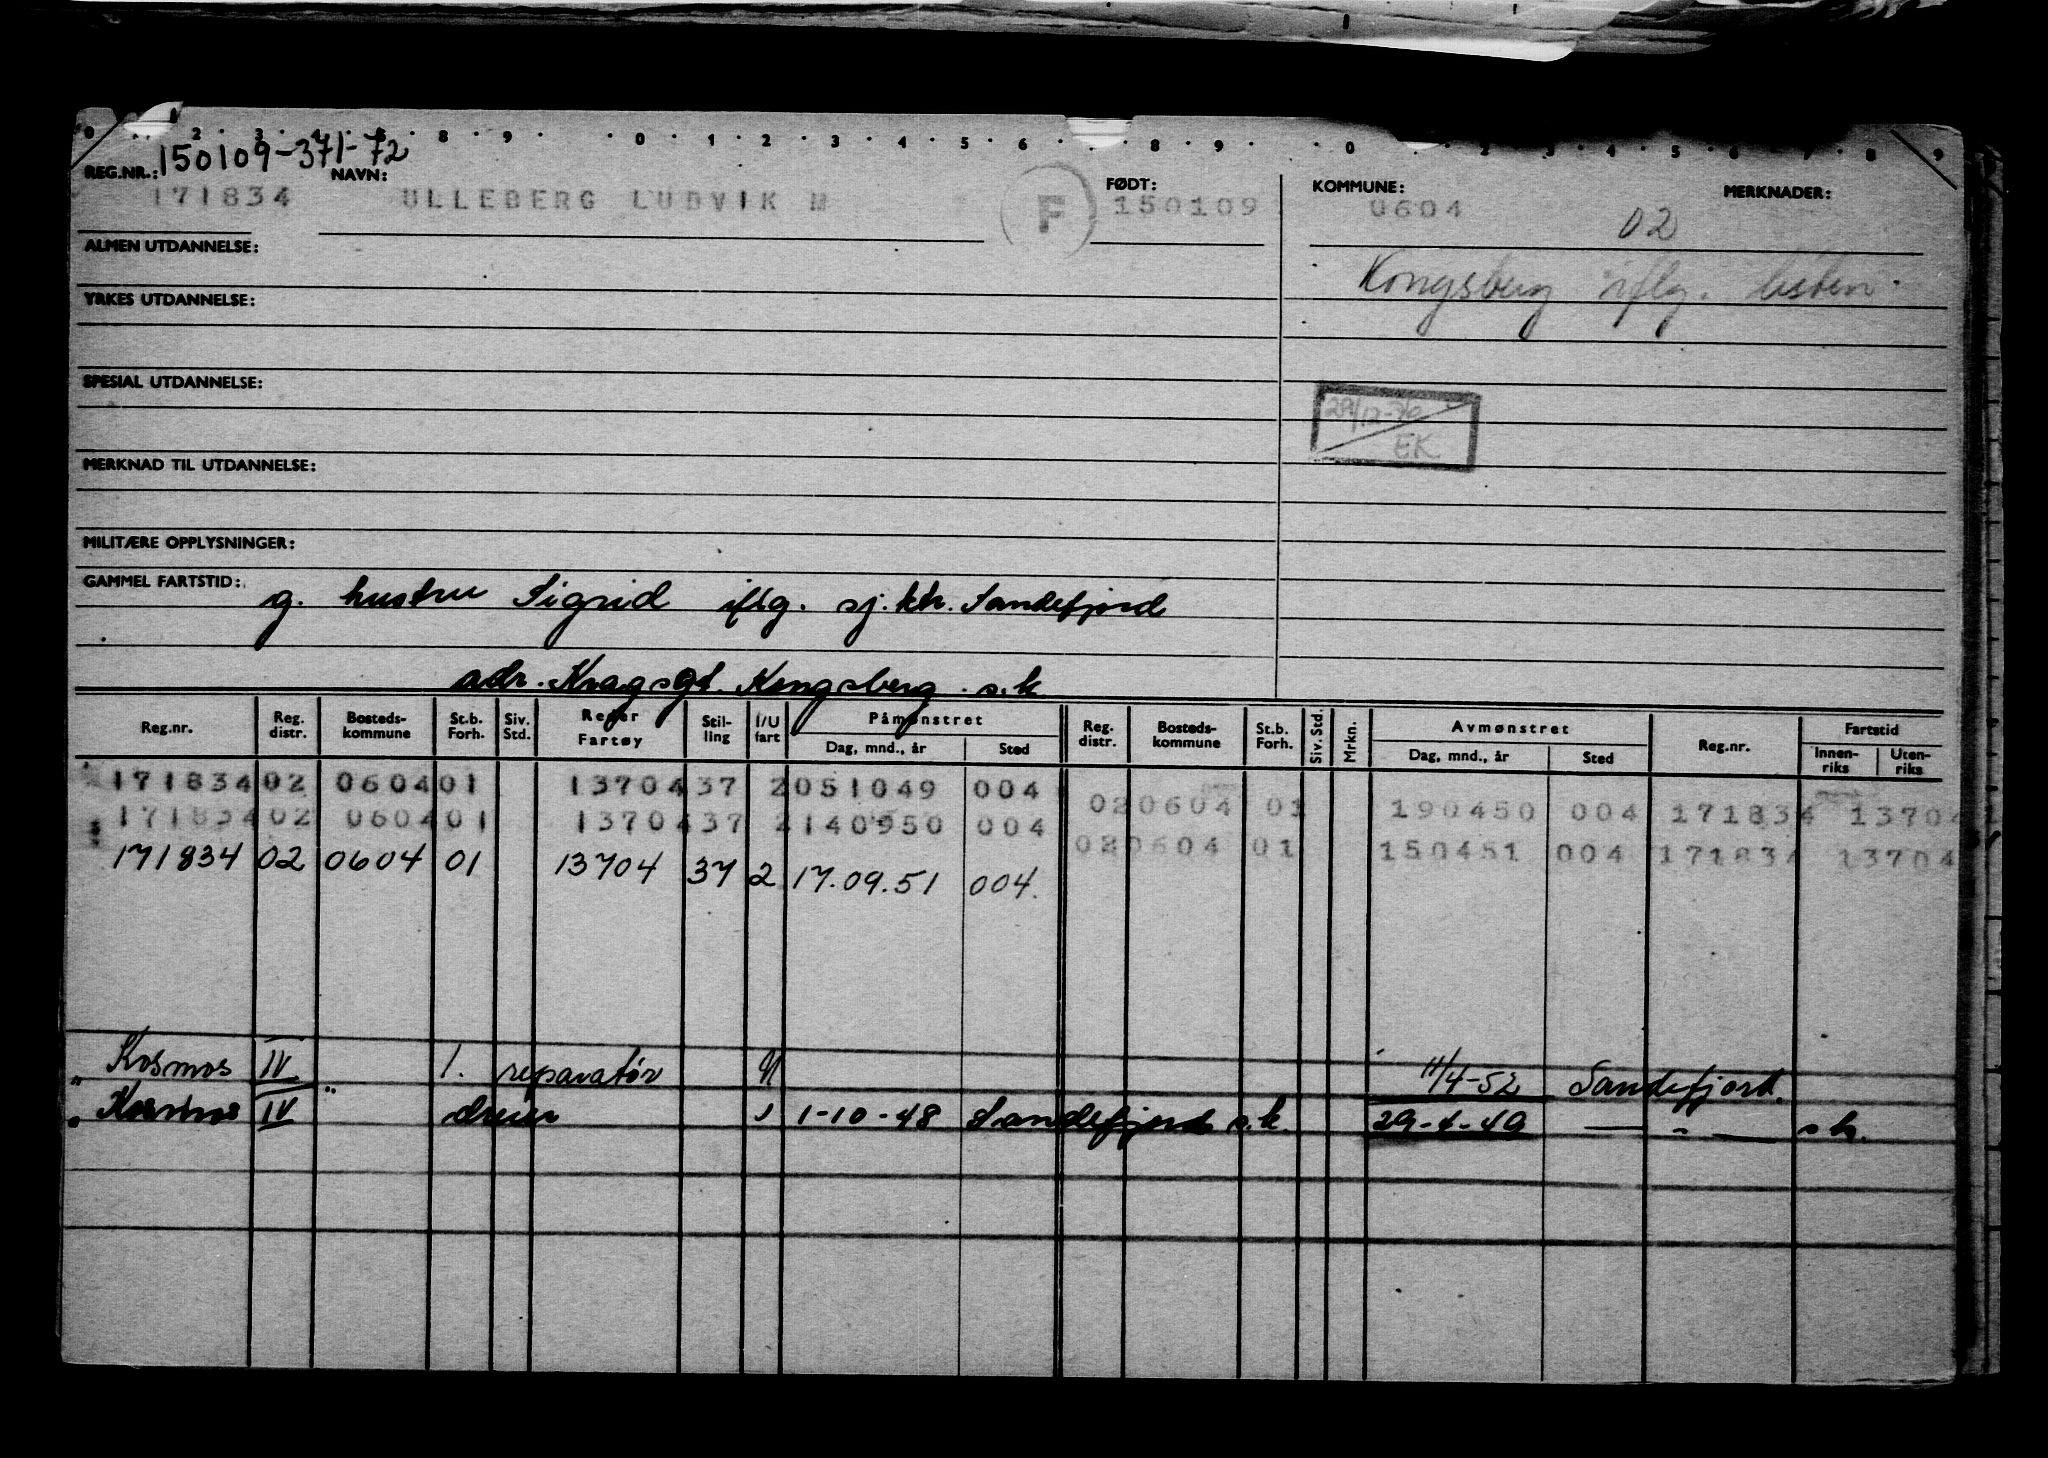 0 2 3 4 8 9 0 1 2 3 4 5 6 8 9 0 2 3 4 5 6 7 8 9
150109-371-72
REG.NR.: NAVN: FØDT: KOMMUNE: MERKNADER:
171834 ULLEBERG LUDVIK M F 150109 0604
02
ALMEN UTDANNELSE:
Kongsberg iflg. listen.
YRKES UTDANNELSE:
SPESIAL UTDANNELSE:
29/12-76
EK
MERKNAD TIL UTDANNELSE:
MILITÆRE OPPLYSNINGER:
GAMMEL FARTSTID: g. hustru Sigrid iflg. sj.ktr. Sandefjord
adr. Kragsgt. Kongsberg. s.k
Reg.nr. Reg. distr. Bosteds-kommune St.b. Forh. Siv. Std. Reder Fartøy Stil-ling I/U fart Påmønstret Dag, mnd., år Sted Reg. distr. Bosteds-kommune St.b. Forh. Siv. Std. Mrkn. Avmønstret Dag, mnd., år Sted Reg.nr. Fartstid Innen-riks Uten-riks
171834 02 0604 01 13704 37 2 051049 004 02 0604 01 190450 004 171834 13704
171834 02 0604 01 13704 37 2 140950 004 02 0604 01 150451 004 171834 13704
171834 02 0604 01 13704 37 2 17.09.51 004.
" Kosmos IV " 1. reparatør 11/4-52 Sandefjord.
" Kosmos IV dreier 1-10-48 Sandefjord s.k. 29-4-49 — " — s k.